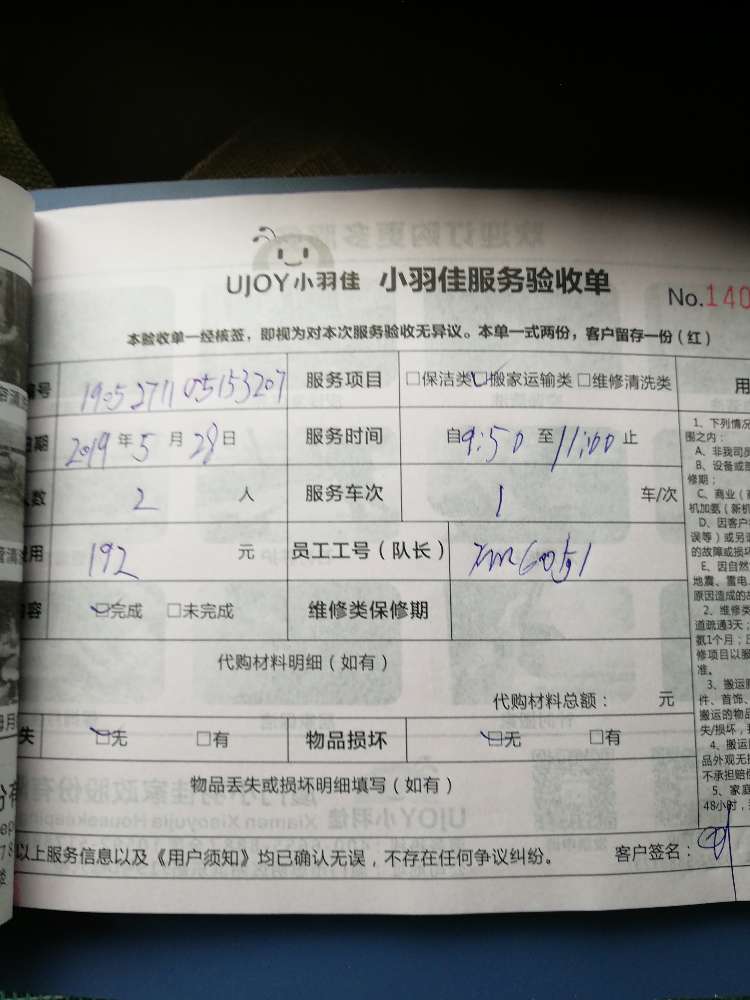 UJOY小羽佳 小羽佳服务验收单 No.140
本验收单一经核签，即视为对本次服务验收无异议。本单一式两份，客户留存一份（红）
编号 1905271105153207 服务项目 □保洁类 ☑搬家运输类 □维修清洗类 用
日期 2019年5月28日 服务时间 自9:50至11:00止
人数 2 人 服务车次 1 车/次
费用 192 元 员工工号（队长）
内容 ☑完成 □未完成 维修类保修期
代购材料明细（如有）
代购材料总额： 元
失 ☑无 □有 物品损坏 ☑无 □有
物品丢失或损坏明细填写（如有）
以上服务信息以及《用户须知》均已确认无误，不存在任何争议纠纷。 客户签名：
1、下列情况
围之内：
A、非我司员
B、设备或
修期；
C、商业（
机加氨（新机
D、因客户
误等）或另
的故障或损坏
E、因自然
地震、雷电
原因造成的故
2、维修类
道疏通3天；
氨1个月；
修项目以服
准。
3、搬运
件、首饰、
搬运的物品
失/损坏，
4、搬运
品外观无
不承担赔偿
5、家庭
48小时，